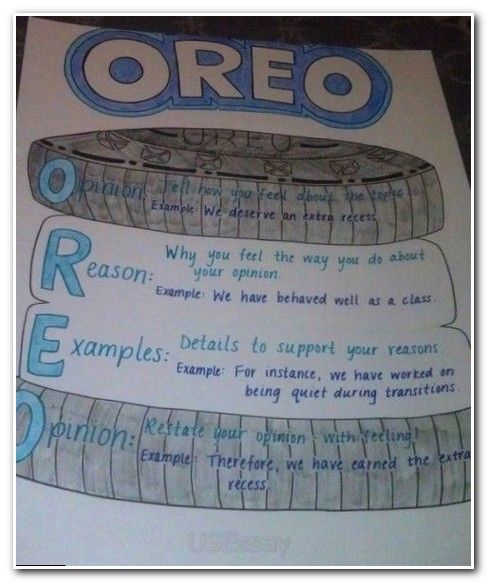 OREO
OREO
Opinion: Tell how you feel about the topic
Example: We deserve an extra recess.
Reason: Why you feel the way you do about
your opinion.
Example: We have behaved well as a class.
Examples: Details to support your reasons.
Example: For instance, we have worked on
being quiet during transitions.
Opinion: Restate your opinion - with feeling!
Example: Therefore, we have earned the extra
recess.
USEssay